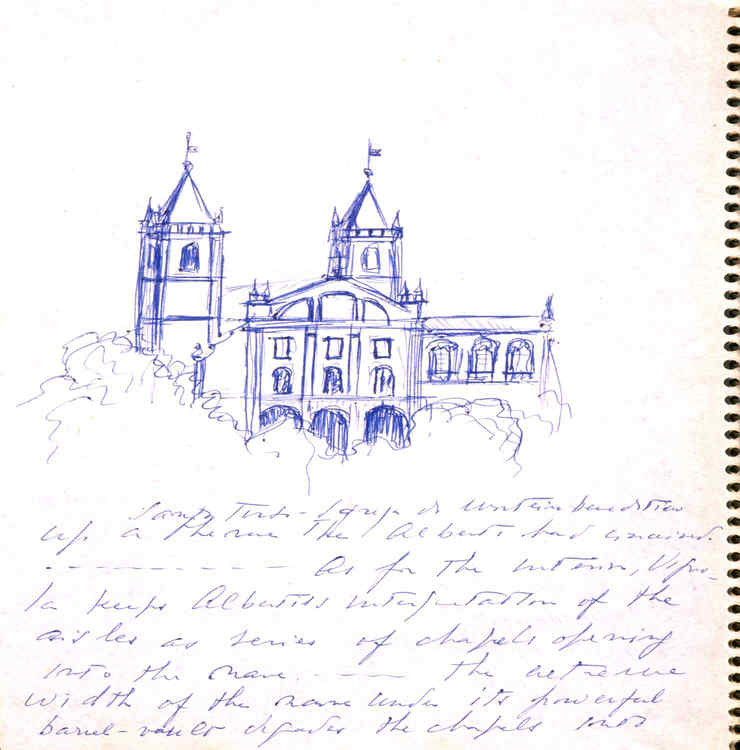 Santo Tirso - Igreja do mosteiro beneditino
up a theme the Alberti had
- - - - - - - - - - As for the interior, Vigno-
la keeps Alberti's interpretation of the
aisles as series of chapels opening
into the nave. - - - - the extreme
width of the nave under its powerful
barrel-vault degrades the chapels into